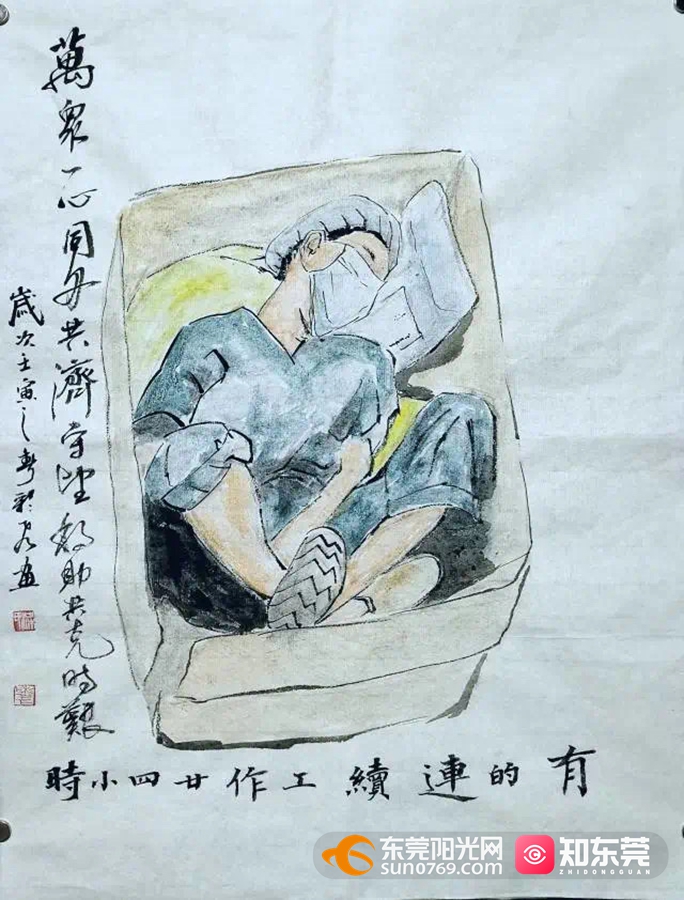 萬眾一心同舟共濟守望助共克時艱
歲次壬寅之春画
有的連續工作廿四小時
东莞阳光网
sun0769.com
知东莞
ZHIDONGGUAN